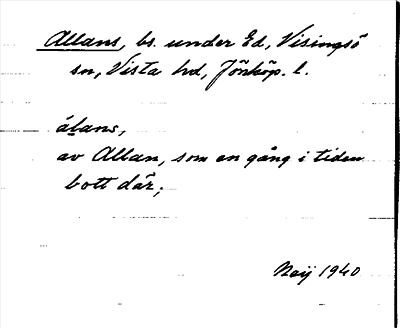 Allans, bs. under Ed, Visingsö
sn, Vista hd, Jönköp. l.
álans,
av Allan, som en gång i tiden
bott där;
Naij 1940